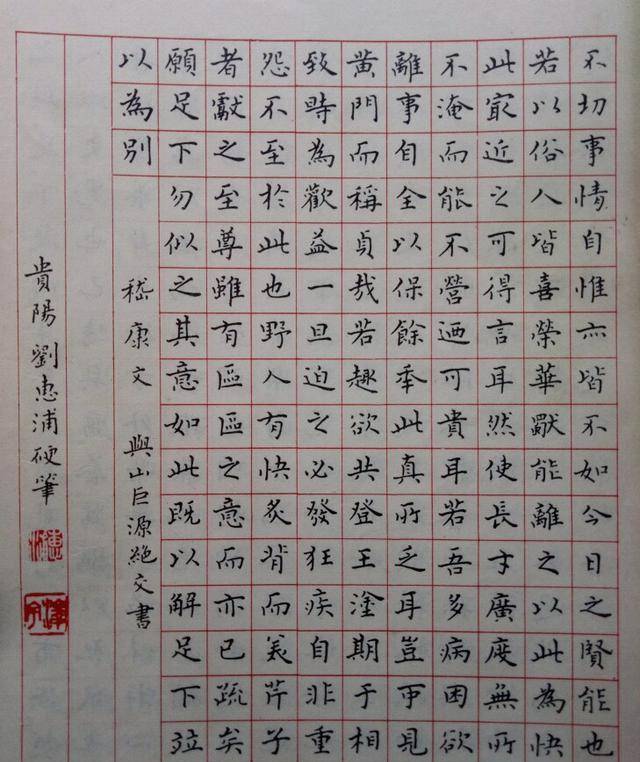 不切事情自惟亦皆不如今日之賢能也
若以俗人皆喜榮華獨能離之以此為快
此冣近之可得言耳然使長才廣度無所
不淹而能不營迺可貴耳若吾多病困欲
離事自全以保餘年此真所乏耳豈可見
黃門而稱貞哉若趣欲共登王塗期于相
致時為歡益一旦迫之必發狂疾自非重
怨不至於此也野人有快炙背而美芹子
者獻之至尊雖有區區之意而亦已疏矣
願足下勿似之其意如此既以解足下竝
以為別
嵇康文
與山巨源絕交書
貴陽劉惠浦硬筆